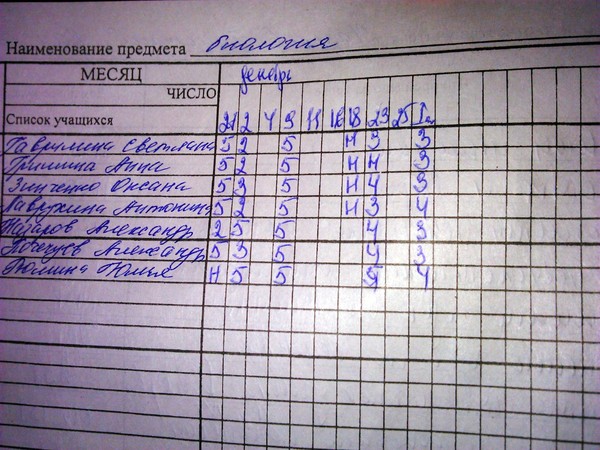 Наименование предмета биология
МЕСЯЦ декабрь
ЧИСЛО
Список учащихся 2 4 9 11 16 18 23 25
Гаврилина Светлана 5 2 5 н 3 3
Гришина Анна 5 2 5 н н 3
Зинченко Оксана 5 3 5 н 4 3
Лаврухина Антонина 5 2 5 н 3 4
Александр 2 5 5 4 3
Александр 5 3 5 4 3
Юлия н 5 5 5 4